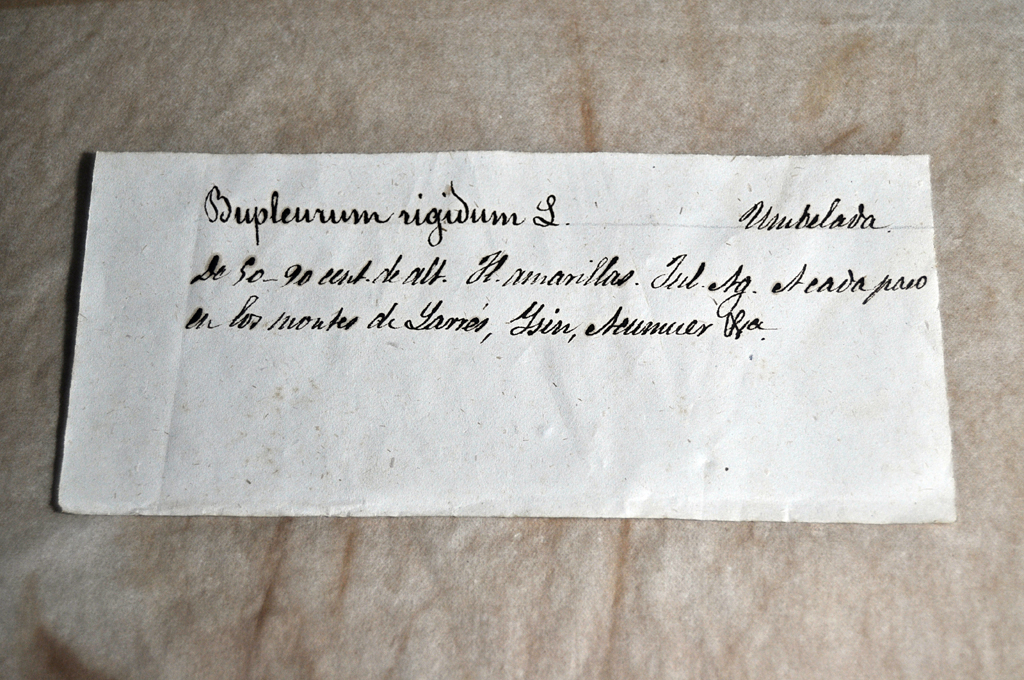 Bupleurum rigidum L. Umbelada.
De 50-90 cent. de alt. Fl. amarillas. Jul. Ag. A cada paso
en los montes de Larrés, Ysin, Acumuer &a.